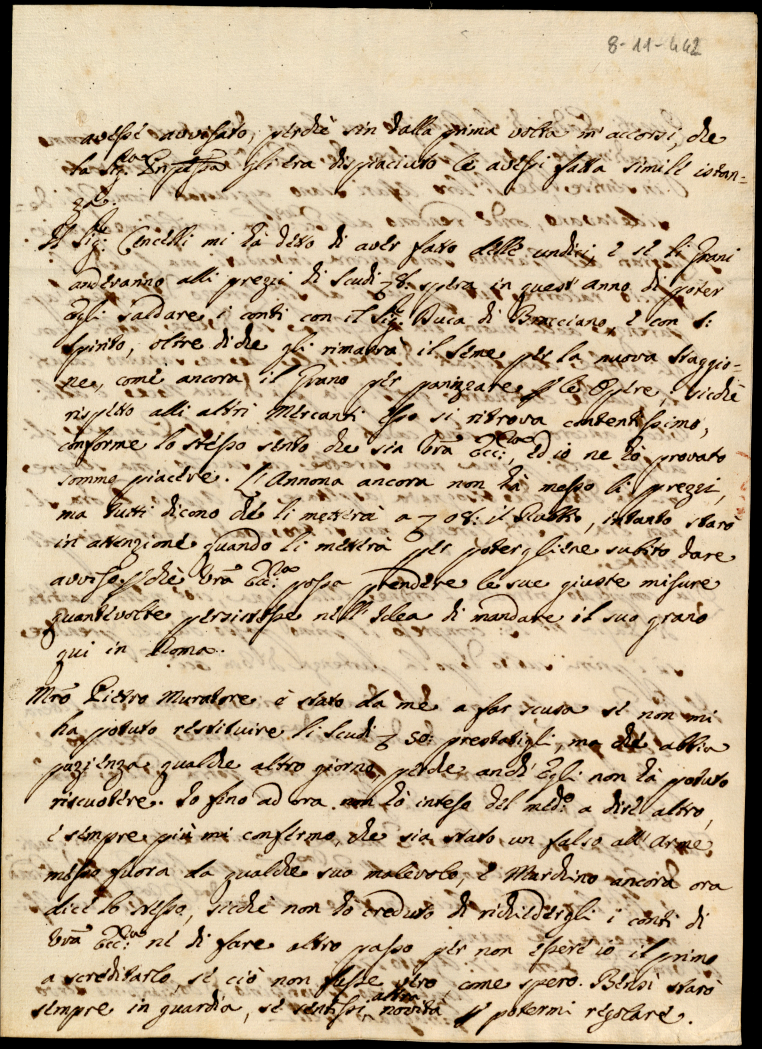 8-11-442
avesse avvisato, perche sin dalla prima volta m'accorsi, che
la Sig.ra Pnpessa gli era dispiaciuto le avessi fatta simile istan=
za.
Il Sig.r Cencelli mi hà detto di aver fatto delle undici, e se li Grani
anderanno alli prezzi di Scudi 78: spera in quest'anno di poter
egli saldare i conti con il Sig.r Duca di Bracciano, e con S:
Spirito, oltre di che gli rimarrà il seme per la nuova staggio=
ne, come ancora il Grano per panizzare p le Opere, sicche
rispetto alli altri Mercanti esso si ritrova contentissimo,
conforme lo stesso sento che sia Vrã Ecc:za, ed io ne hò provato
sommo piacere. L'Annona ancora non hà messo li prezzi,
ma tutti dicono che li metterà a 7 08: il Rubbio, intanto starò
in attenzione quando li metterà per potergliene subito dare
avviso, p che Vrã Ecc:za possa prendere le sue giuste misure
quantevolte persistesse nell'Idea di mandare il suo grano
qui in Roma.
Mrõ Pietro Muratore è stato da mè a far scusa se non mi
ha potuto restituire li Scudi 50: prestatigli, ma che abbia
pazienza qualche altro giorno, perche anch'Egli non hà potuto
riscuotere. Io fino ad ora non hò inteso del med:o a dire altro,
e sempre più mi confermo, che sia stato un falso all'Arme
messo fuora da qualche suo malevolo, e Marchino ancora ora
dice lo stesso, sicche non hò creduto di richiedergli i conti di
Vrã Ecc:za ne di fare altro passo per non essere io il primo
a screditarlo, se ciò non fosse vero come spero. Bensi starò
sempre in guardia, se sentissi altra novità p potermi regolare.